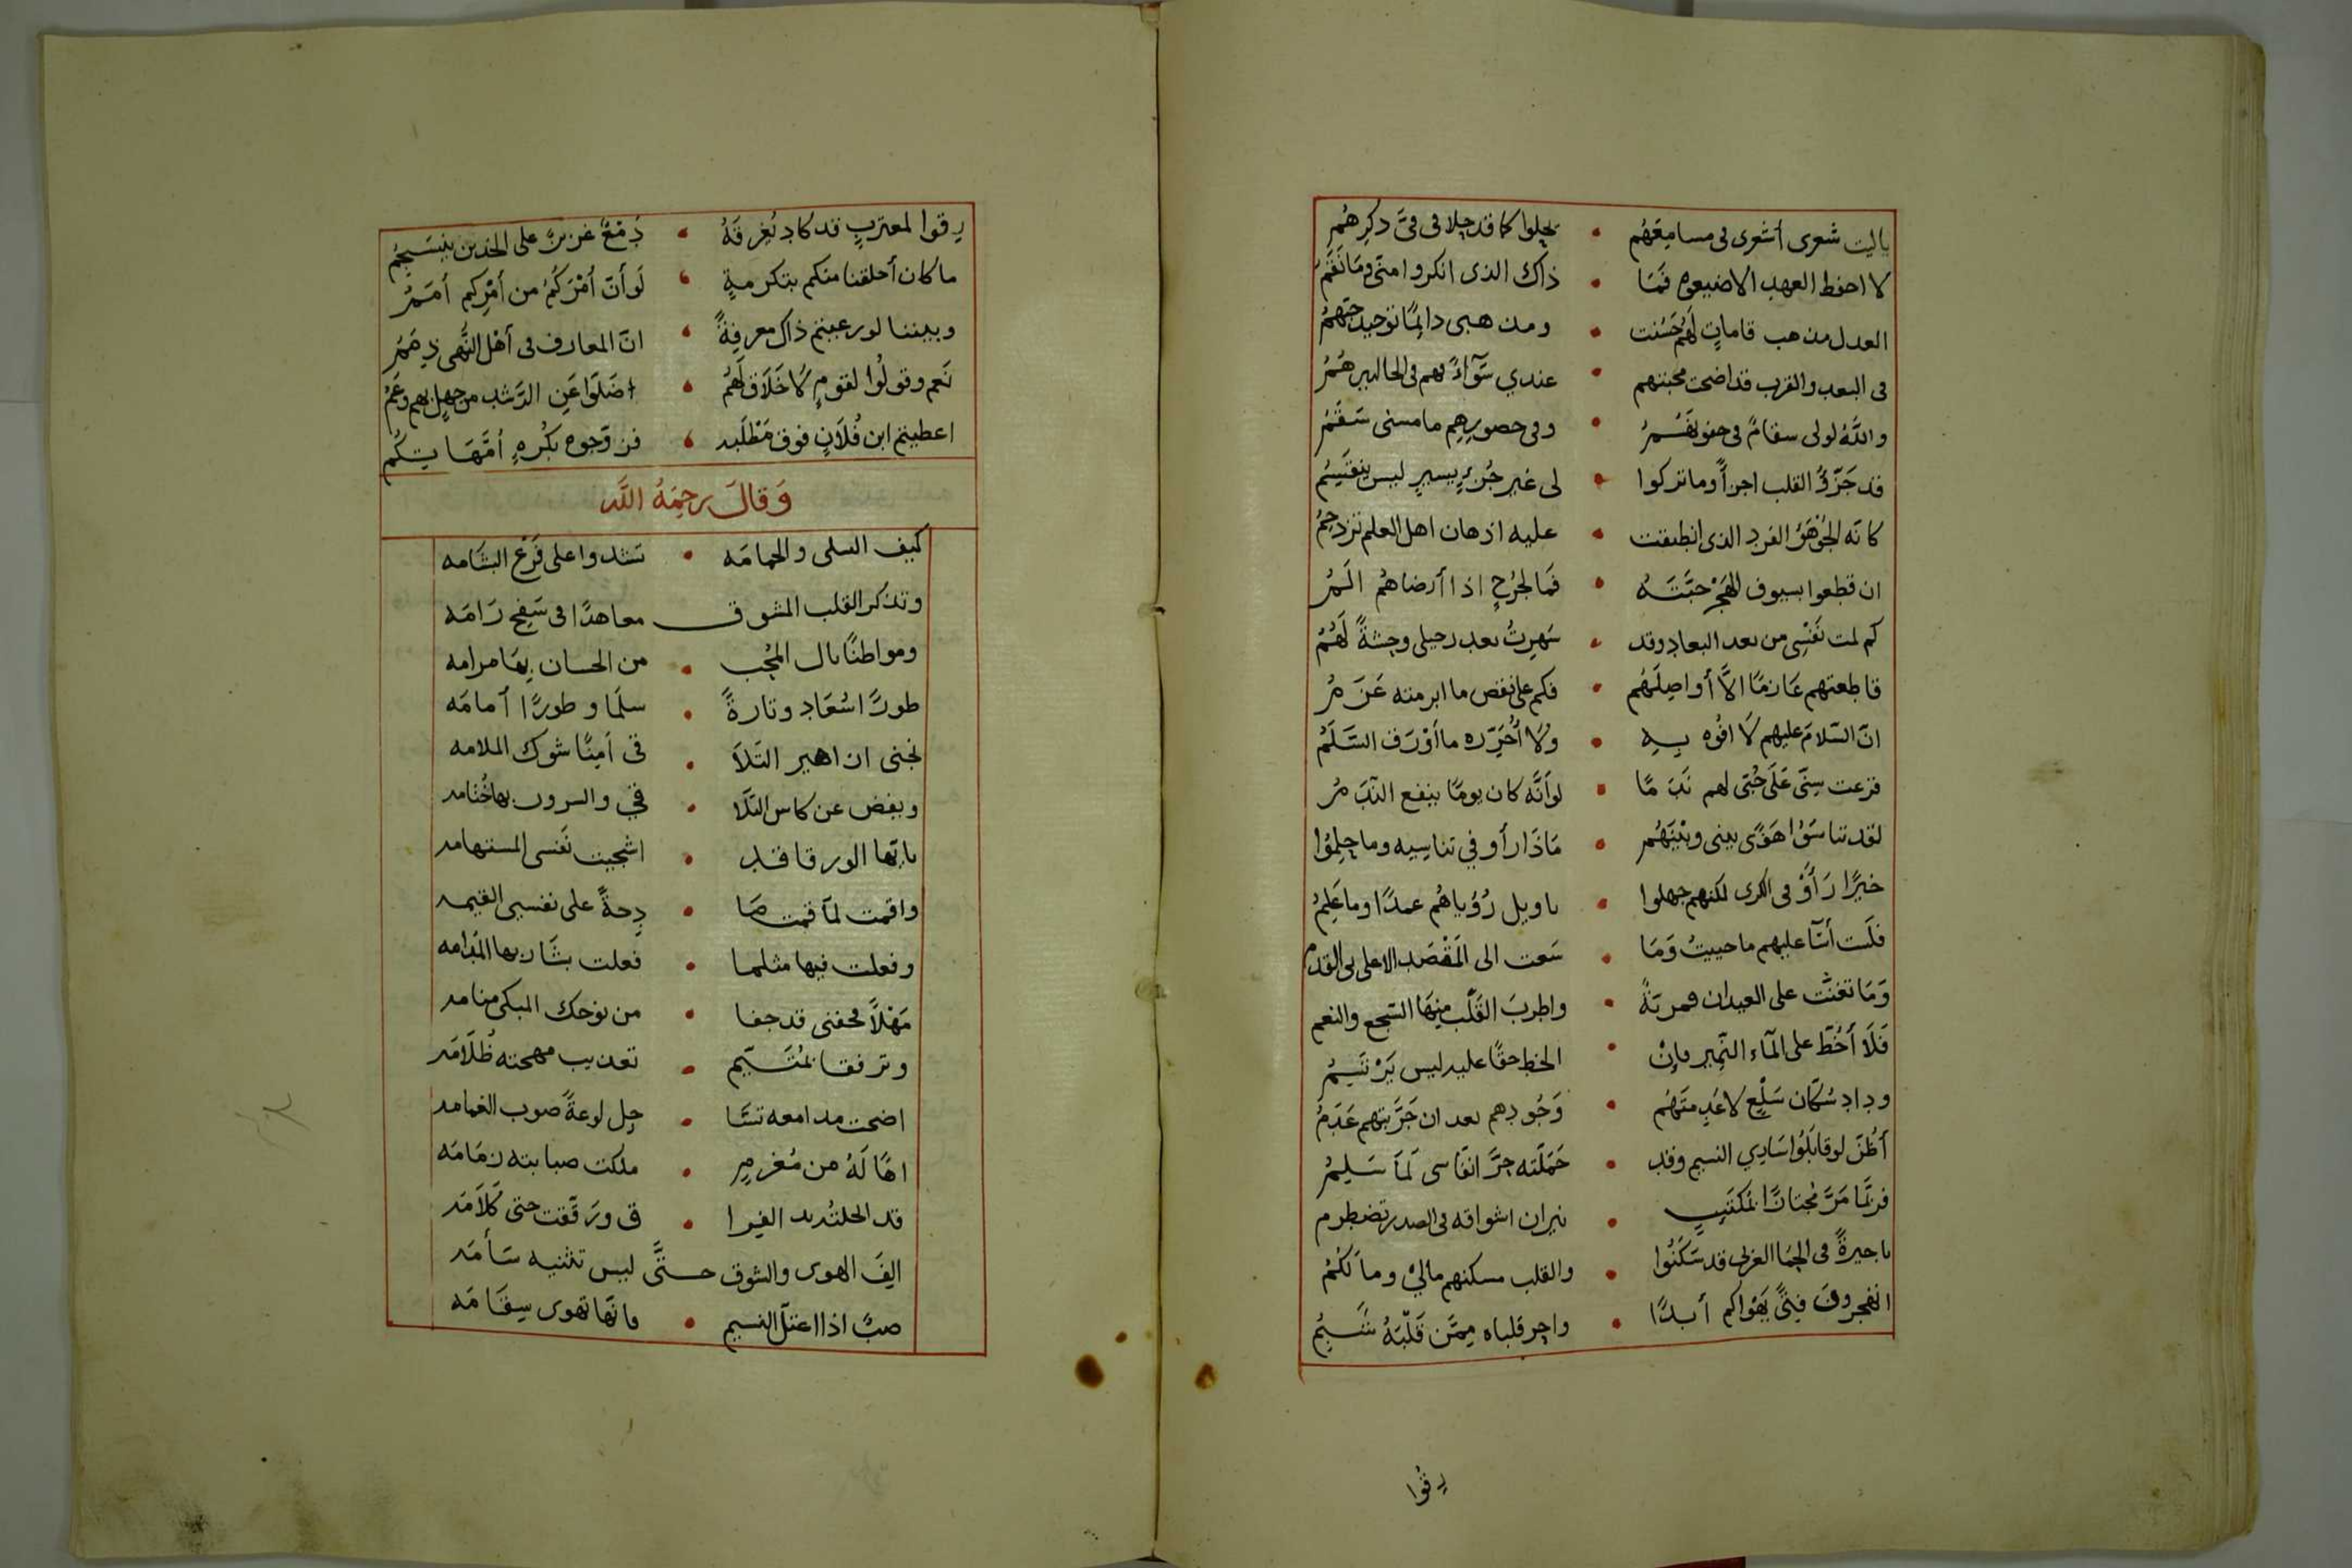 ياليت شعرى أشعرى فى مسامِعَهُم • يحلوا كما قد حلا فى فىّ ذكرهُم
لا احفظ العهد الا ضيعوه فَمَا • ذاك الذى انكروا منّى وما نَقَمُ
العدل مذهب قاماتٍ لَهُم حَسُنت • ومذهبى دايمًا توحيد حبّهمُ
فى البعد والقرب قد اضحت محبتهم • عندي سَوَآءً بهم فى الحالين هُمُ
واللَّهُ لولى سقامٌ فى جفونهُمُ • وفى خصورهِم ما مسنى سَقَمُ
قد جَزّؤُ القلب اجزأً وما تركوا • لى غير جُزءٍ يسيرٍ ليس ينقَسِمُ
كانّه الجُوْهَرُ الفرد الذى انطبقت • عليه اذهان اهل العلم تزدحِمُ
ان قطعوا بسيوف الهَجْر حبَّتَهُ • فَمَا لجُرحٍ اذا أرضاهمُ الَمُ
كم لمت نَفْسِى من بعد البعاد وقد • سَهِرتُ بعد رحيلى وحشةً لَهُمُ
قاطعتهم عَازمًا الاَّ أواصِلَهُم • فكم على نقض ما ابرمته عَزَمُ
انّ السَّلامَ عليهم لَا افُوه بِهِ • ولا أُحَرِّره ما أوْرَف السَّلَمُ
قرعت سِنّى عَلَى حُبّى لهم نَدَمًا • لوأنَّه كان يومًا ينفع النّدَمُ
لقد تناسَوْا هَوًى بينى وبَيْنَهُم • مَاذَا رأو فى تناسِيه وما حلِمُوا
خيرًا رَأوْ فى الكرى لكنهم جهلوا • ياويل رُؤياهُم عمدًا وما عَلِمُ
فلَست أنسَآ عليهم ما حييتُ وَمَا • سَعت الى المَقْصَد الاعلى بى القدم
وَمَا تغنّت على العيدان قمريّةً • واطربَ القَلْب مِنهَا السّجع والنغم
فَلَا أخُطّ على المآء النّمِير وإنْ • الخط حقًا عليه ليس يَرْتَسِمُ
وداد سُكّان سَلْعٍ لا عُدِمتَهُم • وَجُودهم بعد ان جَرَّبتهم عَدَمُ
أظُنّ لو قابَلُوا سَاري النسيم وقد • حَمَلّته حرَّ انفاسى لَمَا سَلِمُ
فربّمَا مَرَّ مُجتازًا لمكتَئِبٍ • نيران اشواقه فى الصدر تضطرم
ياجيرةً فى الحِمَا الغربى قد سَكَنُوا • والقلب مسكنهم مالِيْ وما لَكُمُ
اتهجرونَ فتىً يَهْوَاكم أبدًا • واحر قلباه مِمّن قَلْبَهُ شَبِمُ
رقوا
رقوا لمغتربٍ قد كاد يُغرِقَهُ • دَمْعٌ غزيرٌ على الخدين ينسَجِمُ
ما كان أخلقنا منكم بتكرمةٍ • لَو أنّ أمْرَكُمُ من أمْرِكم أمَمُ
وبيننا لو رعيتم ذاك معرفةً • انّ المعارف فى أهْل النُّهى ذِمَمُ
نَعم وقولُوا لقومٍ لَا خَلَاقَ لَهُمُ • اضَلّوا عَنِ الرّشد من جهلٍ بهم وعَمُ
اعطيتم ابن فُلَانٍ فوق مَطْلَبه • فزوّجوه بكُرهٍ أمَّهَا بِتكُم
وَقالَ رحِمَهُ اللَّه
كيف السلى والحمامَه • تشدوا على فَرْع البشَامه
وتذكر القلب المشوق معاهدًا فى سَفِح رَامَه
ومواطنًا نال المُحِب • من الحسان بِهَا مرامه
طورًا سُعَاد وتارةً • سلمَا وطورًا أمامَه
نجنى ازاهير التلَا • قى أمِنًا شوك الملامه
ويفض عن كاس التلَا • قى والسرور بها خُتامه
يايّها الورقا قد • اشجيت نَفسى المستهامه
واقمت لمّا قمت صَا • دِحةً على نفسى القيمه
وفعلت فيها مثلما • فعلت بشَاربها المُدامه
مَهْلاً فجفنى قد جفا • من نوحك المبكى منامه
وترفقا لمُتَيّمٍ • تعذيب مهجته ظُلَامَه
اضحت مدامعه تسَا • جل لوعةً صوب الغمامه
اهًا لَهُ من مُغرمٍ • ملكت صبابته زمَامَه
الِفَ الهوى والشوق حتَّى ليس تثنيه سَأمَه
صبٌ اذا اعتلّ النسيم • فانّها تهوى سِقَامَه